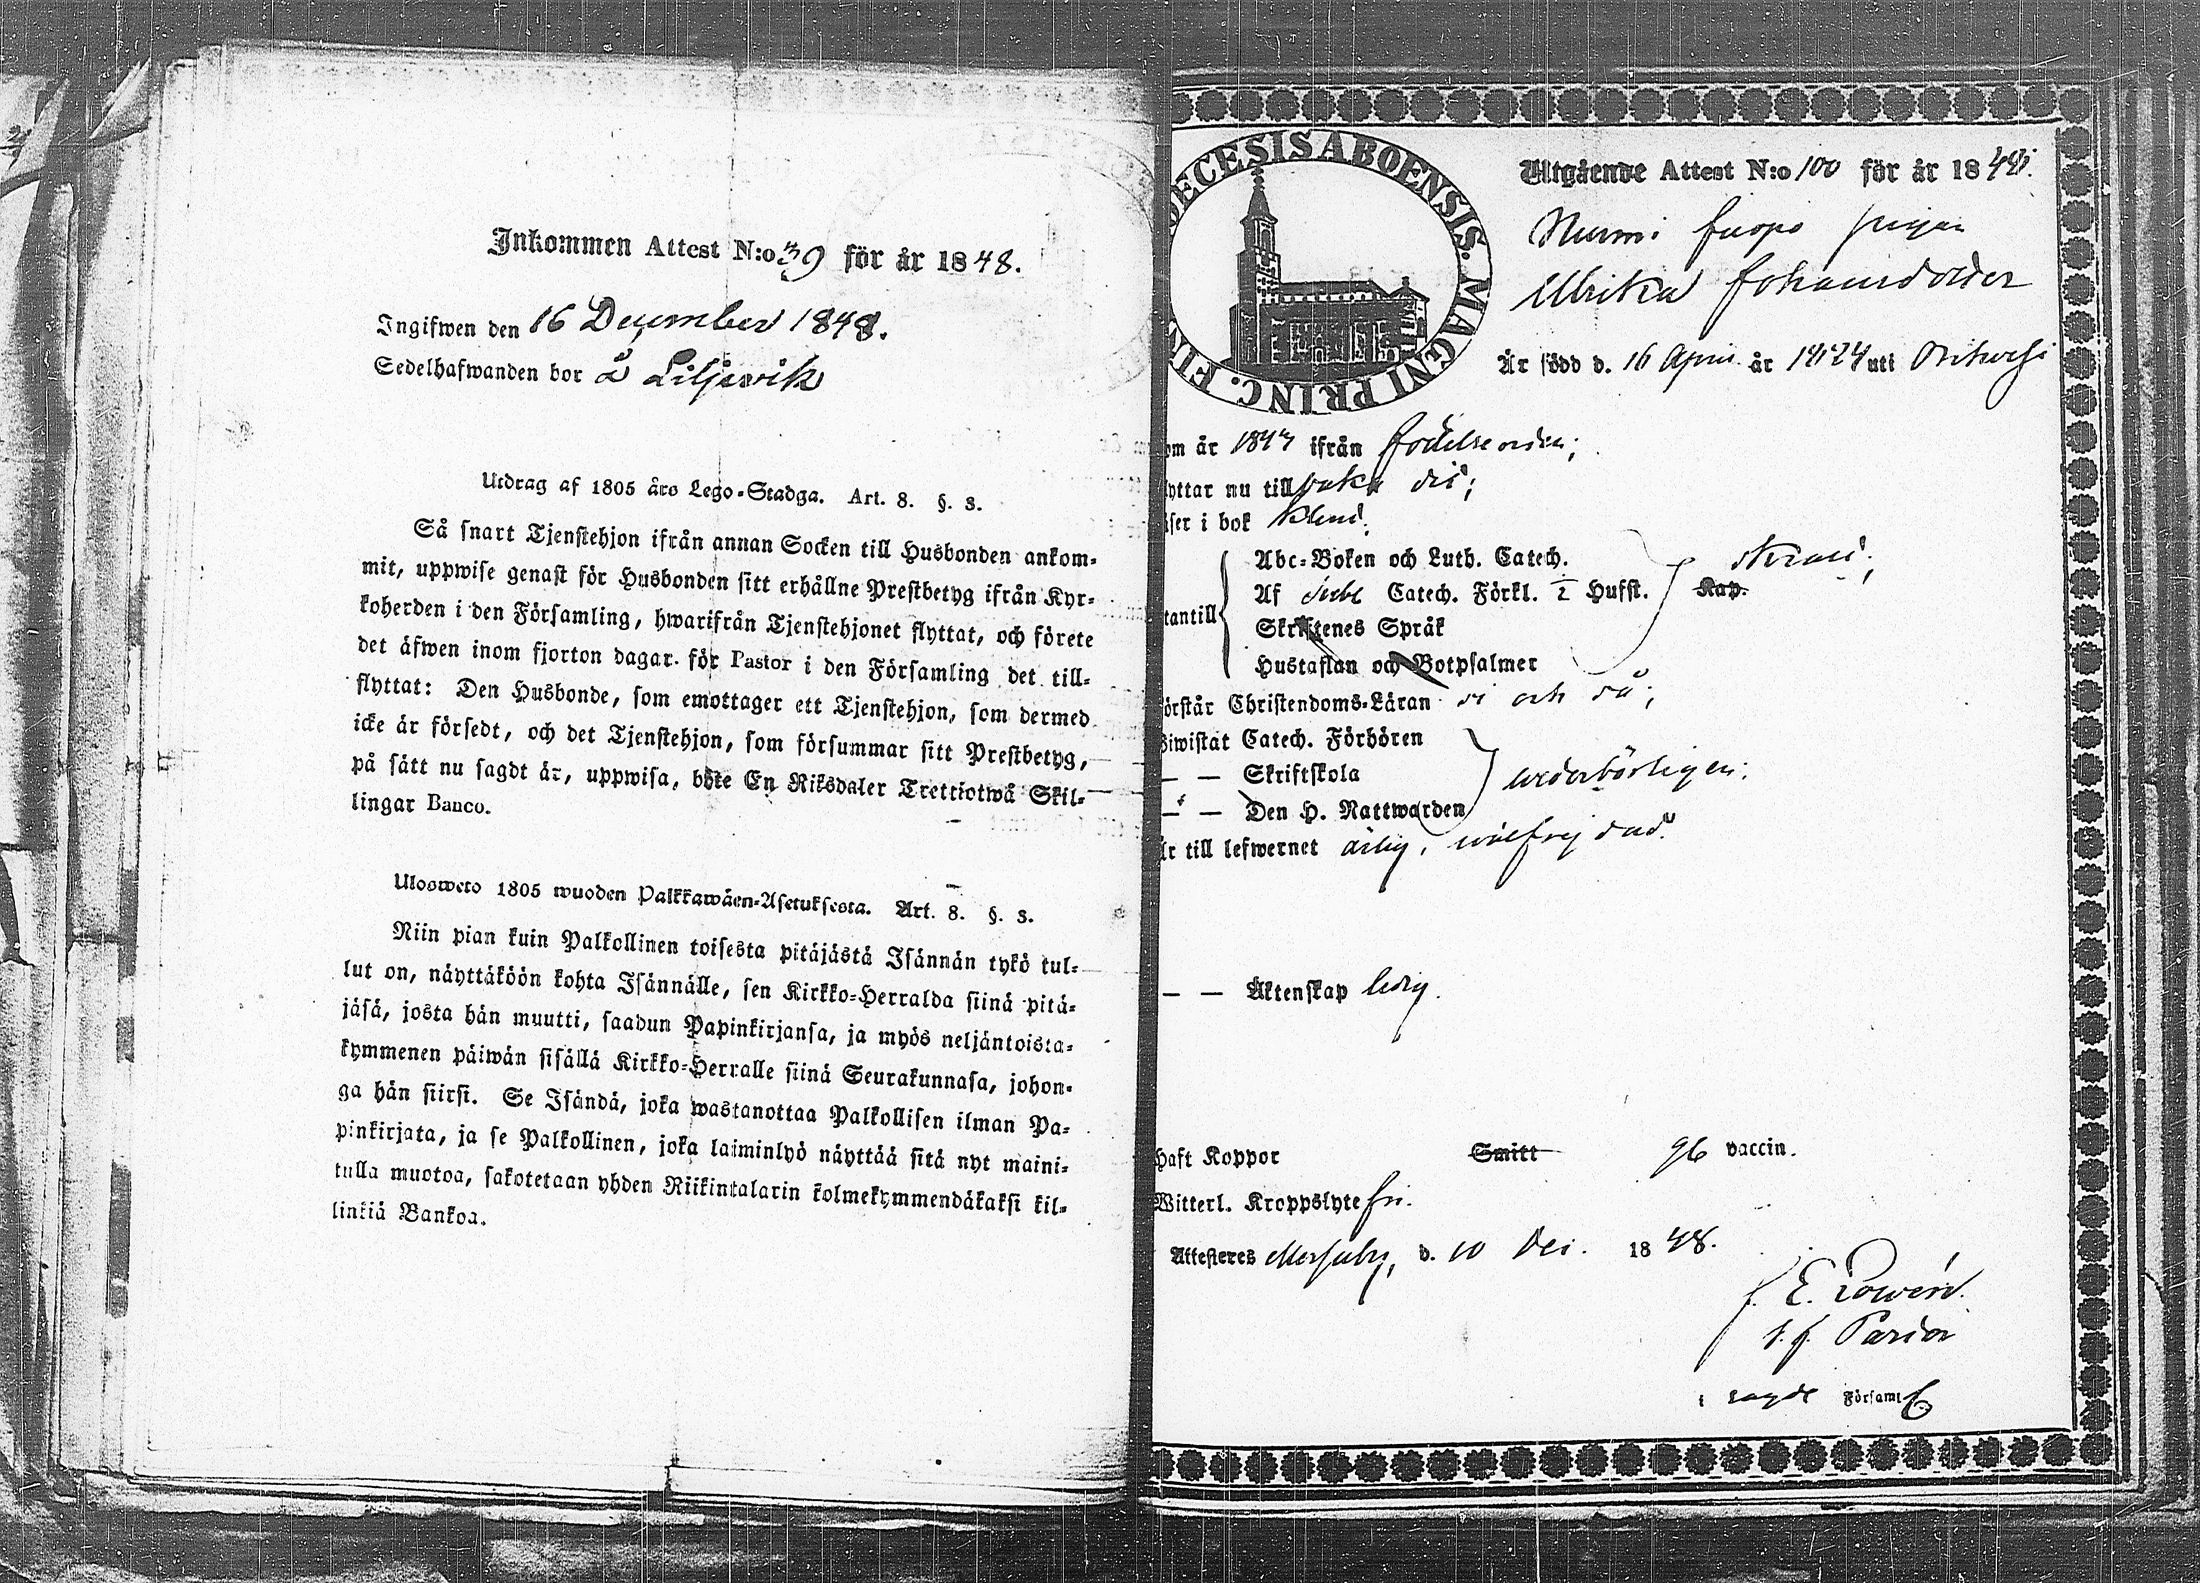 Inkommen Attest N:o 39 för år 1848.
Ingifwen den 16 December 1848.
Sedelhafwanden bor å Liljewik
Utdrag af 1805 års Lego-Stadga. Art. 8. §. 3.
Så snart Tjenstehjon ifrån annan Socken till Husbonden ankom-
mit, uppwise genast för Husbonden sitt erhållne Prestbetyg ifrån Kyr-
koherden i den Församling, hwarifrån Tjenstehjonet flyttat, och förete
det äfwen inom fjorton dagar för Pastor i den Församling det till-
flyttat: Den Husbonde, som emottager ett Tjenstehjon, som dermed
icke är försedt, och det Tjenstehjon, som försummar sitt Prestbetyg,
på sätt nu sagdt är, uppwisa, böte En Riksdaler Trettiotwå Skil-
lingar Banco.
Ulosweto 1805 wuoden Palkkawäen-Asetuksesta. Art. 8. §. 3.
Niin pian kuin Palkollinen toisesta pitäjästä Isännän tykö tul-
lut on, näyttäköön kohta Isännälle, sen Kirkko-Herralda siinä pitä-
jäsä, josta hän muutti, saadun Papinkirjansa, ja myös neljäntoista-
kymmenen päiwän sisällä Kirkko-Herralle siinä Seurakunnasa, johon-
ga hän siirsi. Se Isändä, joka wastanottaa Palkollisen ilman Pa-
pinkirjata, ja se Palkollinen, joka laiminlyö näyttää sitä nyt maini-
tulla muotoa, sakotetaan yhden Riikintalarin kolmekymmendäkaksi kil-
linkiä Bankoa.
DECESIS ABOENSIS. MAGNI PRINC. FIN
Utgående Attest N:o 100 för år 1848.
Nurmi pigan
Ulrika Johansdotter
Är född d. 16 April år 1824 uti
om år 1847 ifrån födelseorten;
lyttar nu till baka dit;
äser i bok klent.
tantill
Abc-Boken och Luth. Catech.
Af Catech. Förkl. 2 Hufst. Kap.
Skriftenes Språk
Hustaflan och Botpsalmer
örstår Christendoms-Läran så och så;
Biwistat Catech. Förhören
— — Skriftskola
— — Den H. Nattwarden
wederbörligen;
är till lefwernet ärlig, wälfrejdad.
— — Äktenskap ledig.
haft Koppor Smitt vaccin.
Witterl. Kroppslyte fri.
Attesteres d. 10 Dec. 1848.
i sagde Församl